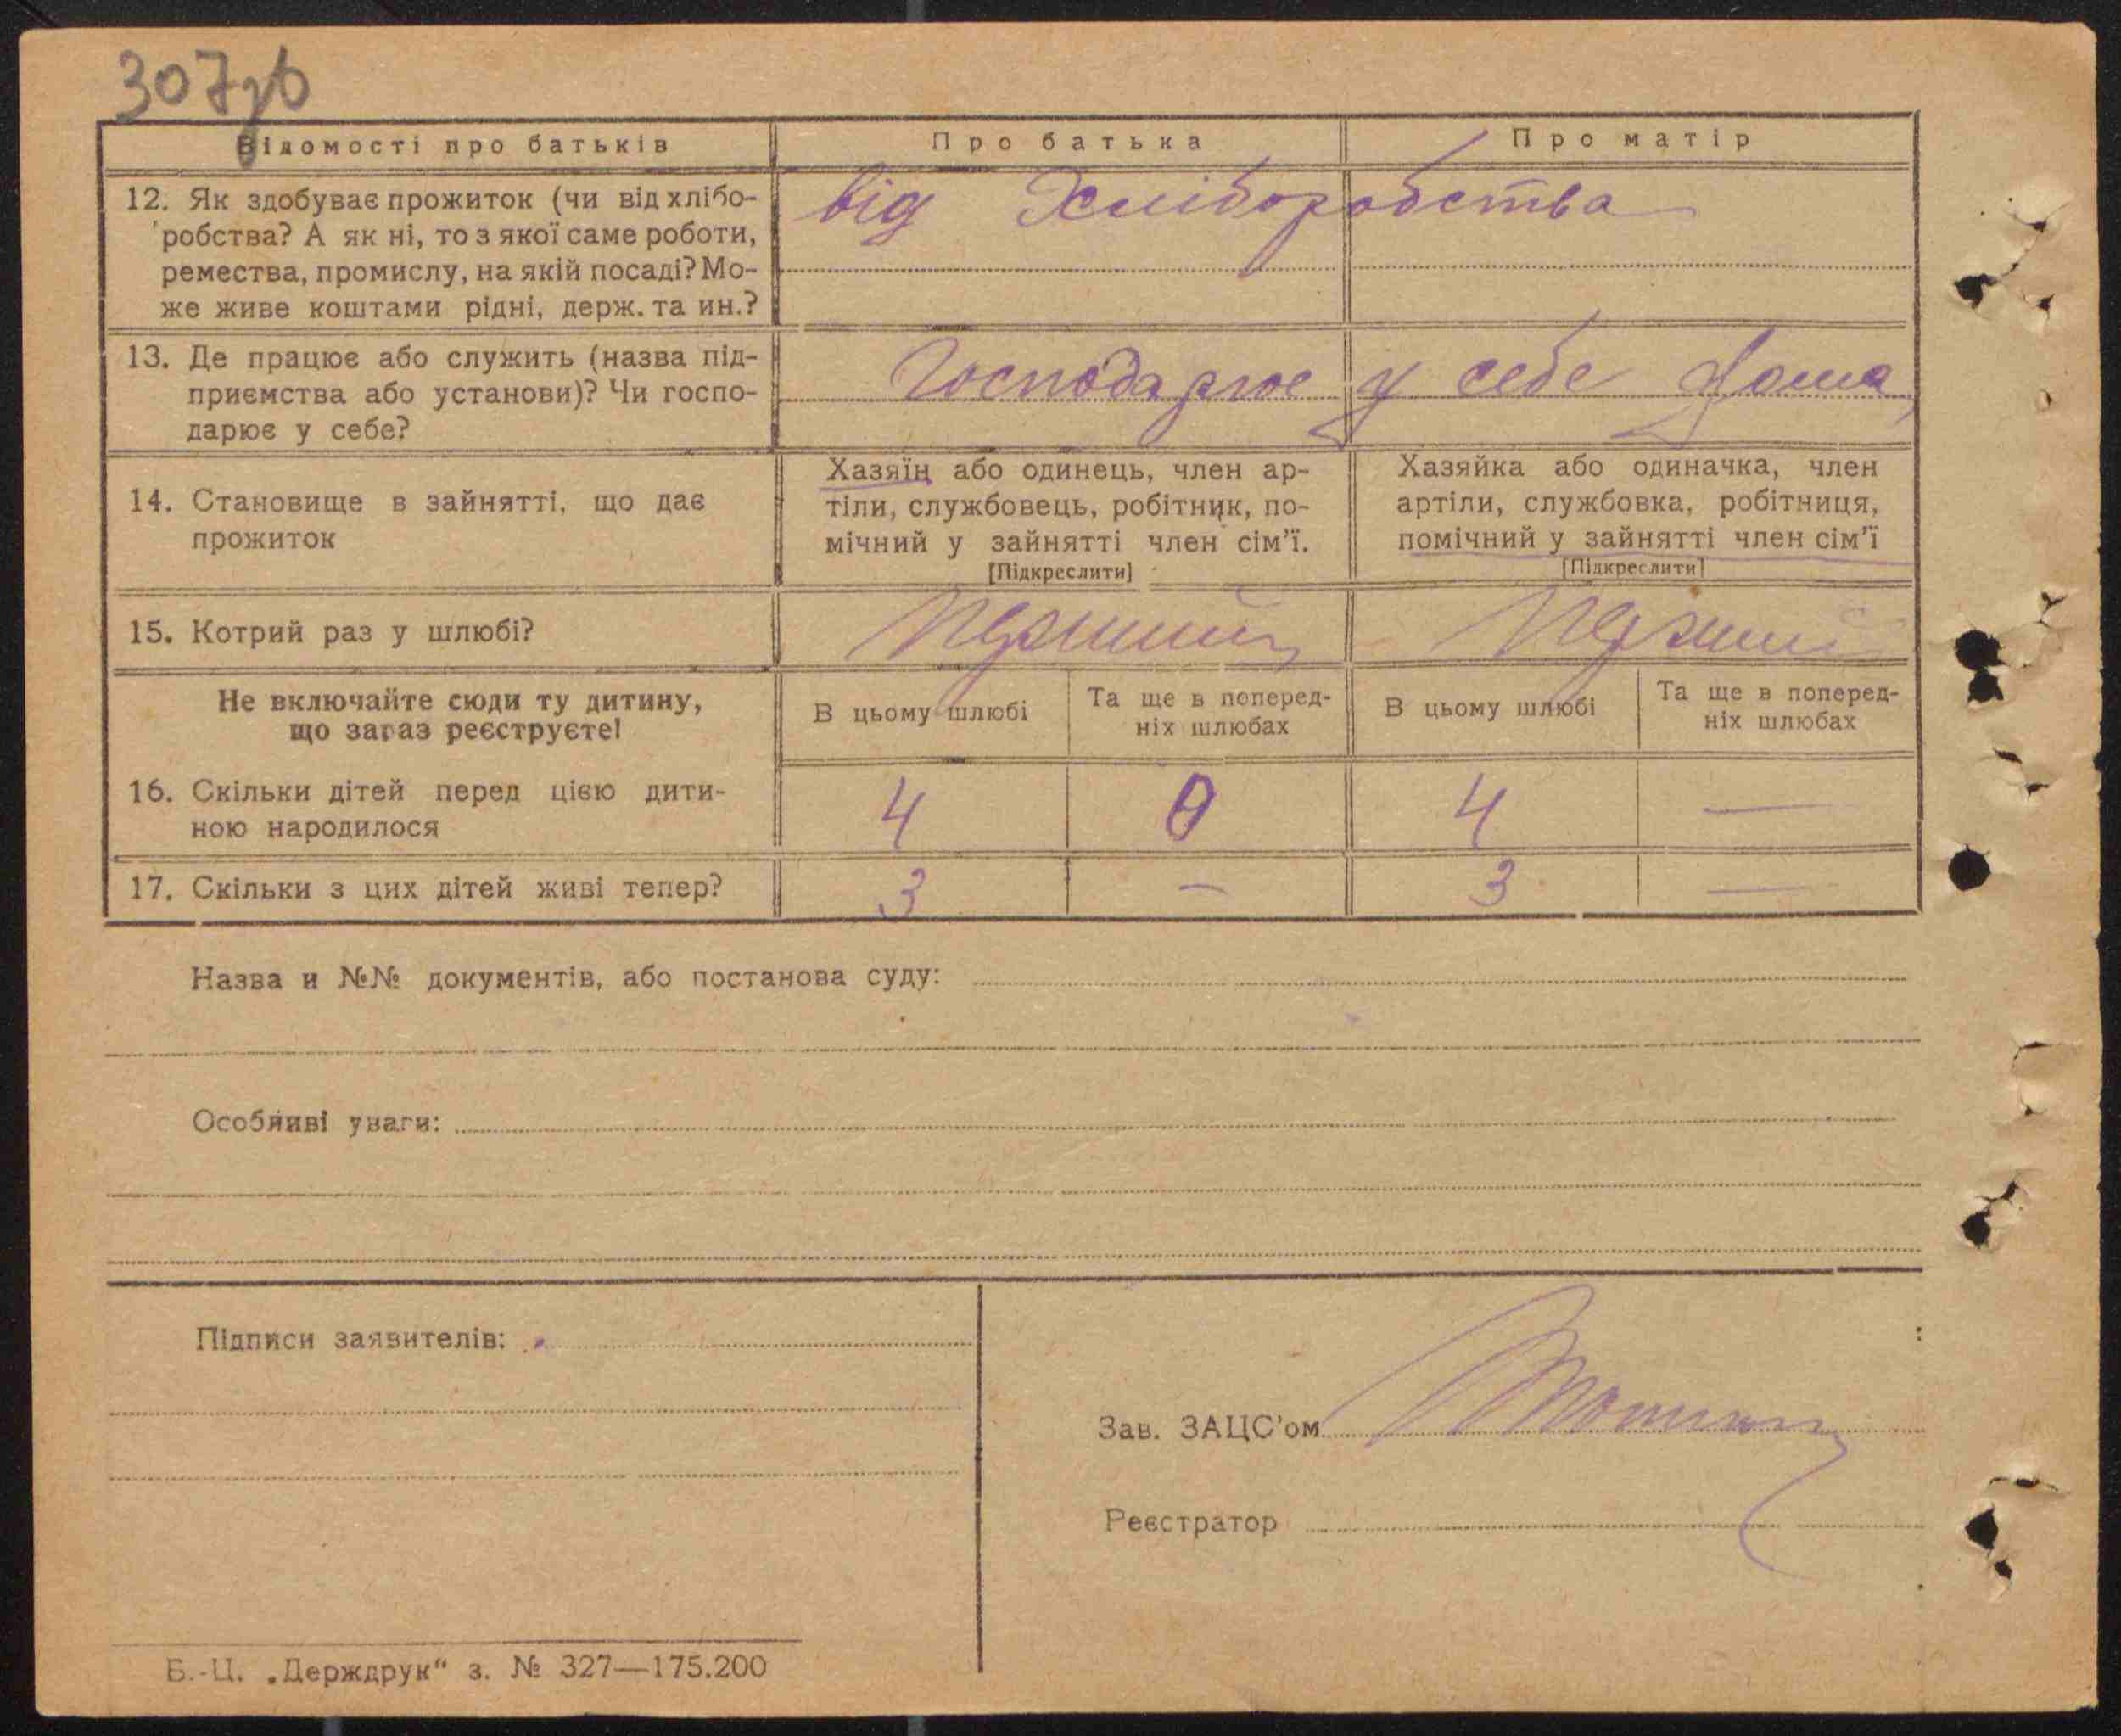 307зв
Відомості про батьків
Про батька
Про матір
12. Як здобуває прожиток (чи від хлібо-
робства? А як ні, то з якої саме роботи,
ремества, промислу, на якій посаді? Мо-
же живе коштами рідні, держ. та ин.?
від Хліборобства
13. Де працює або служить (назва під-
приємства або установи)? Чи госпо-
дарює у себе?
Господарює у себе дома
14. Становище в зайнятті, що дає
прожиток
Хазяїн або одинець, член ар-
тіли, службовець, робітник, по-
мічний у зайнятті член сім'ї.
[Підкреслити]
Хазяйка або одиначка, член
артіли, службовка, робітниця,
помічний у зайнятті член сім'ї
[Підкреслити]
15. Котрий раз у шлюбі?
Перший
Перший
Не включайте сюди ту дитину,
що зараз реєструєте!
В цьому шлюбі
Та ще в поперед-
ніх шлюбах
В цьому шлюбі
Та ще в поперед-
ніх шлюбах
16. Скільки дітей перед цією дити-
ною народилося
4 0 4 —
17. Скільки з цих дітей живі тепер?
3 — 3 —
Назва и №№ документів, або постанова суду:
Особливі уваги:
Підписи заявителів:
Зав. ЗАЦС'ом
Реєстратор
Б.-Ц. „Держдрук“ з. № 327—175.200